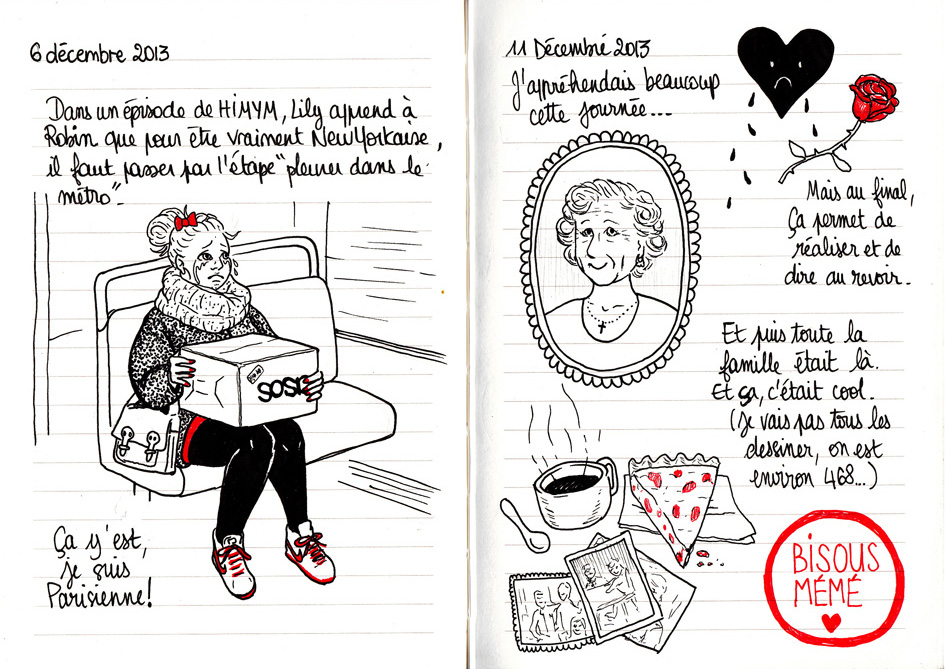 6 décembre 2013
Dans un épisode de HIMYM, Lily apprend à
Robin que pour être vraiment NewYorkaise,
il faut passer par l'étape "pleurer dans le
métro"_
SOSH
Ça y'est,
je suis
Parisienne!
11 Décembre 2013
J'appréhendais beaucoup
cette journée...
Mais au final,
Ça permet de
réaliser et de
dire au revoir_
Et puis toute la
famille était là.
Et ça, c'était cool.
(Je vais pas tous les
dessiner, on est
environ 468...)
BISOUS
MÉMÉ